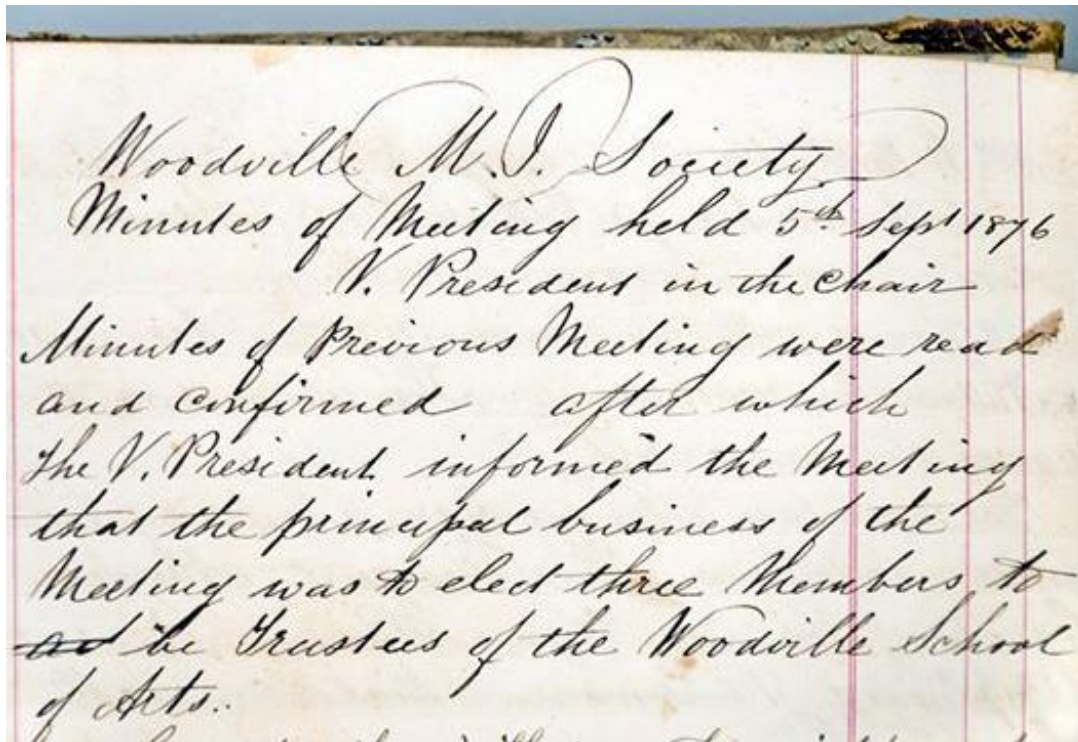 Woodville M. I. Society
Minutes of Meeting held 5th Sept 1876
V. President in the Chair
Minutes of Previous Meeting were read
and confirmed after which
the V. President informed the Meeting
that the principal business of the
Meeting was to elect three Members to
be Trustees of the Woodville School
of Arts.